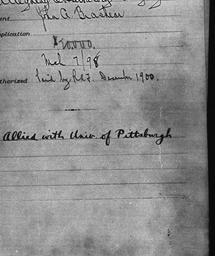 John A. Brashear
plication
$20,000.
Mch 7/98
thorized Paid by R.d.F. December 1900.
Allied with Univ. of Pittsburgh